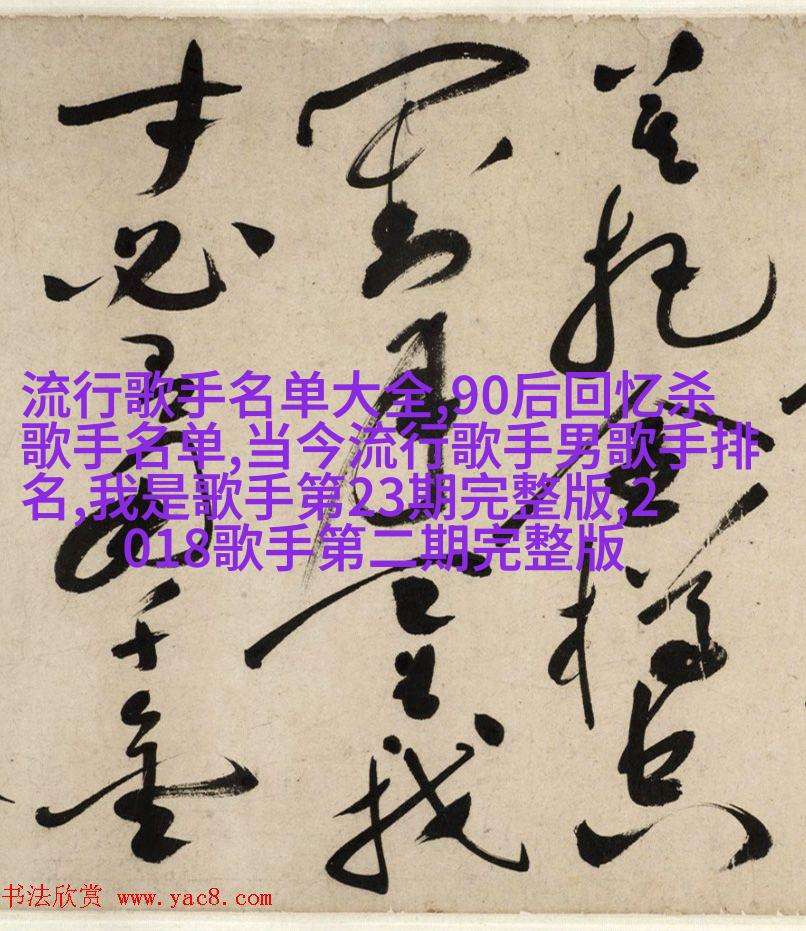 莫把金樽空
對月天生我
才必有用千金
流行歌手名单大全,90后回忆杀
歌手名单,当今流行歌手男歌手排
名,我是歌手第23期完整版,2
018歌手第二期完整版
书法欣赏 www.yac8.com